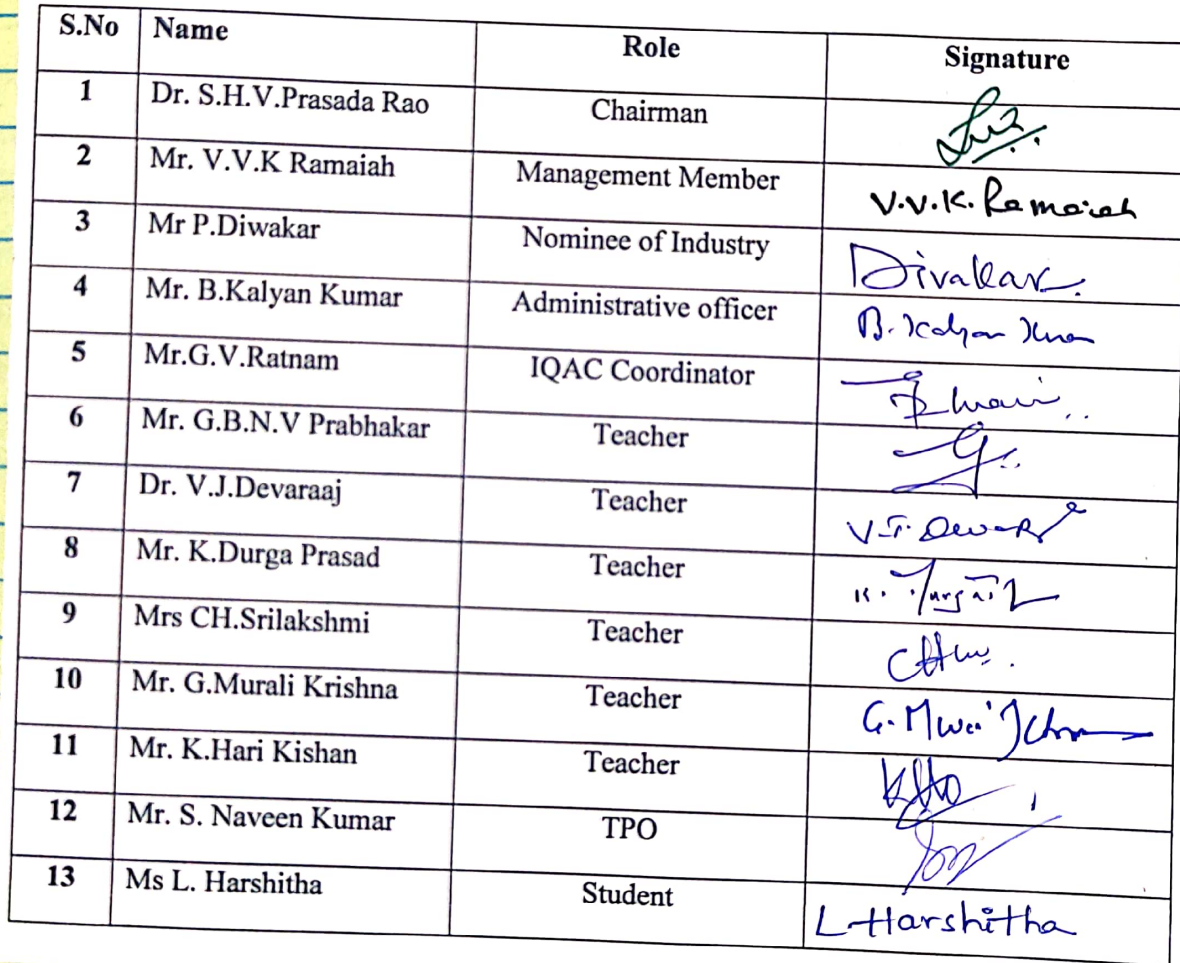 S.No Name Role Signature
1 Dr. S.H.V.Prasada Rao Chairman
2 Mr. V.V.K Ramaiah Management Member V.V.K. Ramaiah
3 Mr P.Diwakar Nominee of Industry Divakar
4 Mr. B.Kalyan Kumar Administrative officer B. Kalyan Kumar
5 Mr.G.V.Ratnam IQAC Coordinator
6 Mr. G.B.N.V Prabhakar Teacher
7 Dr. V.J.Devaraaj Teacher
8 Mr. K.Durga Prasad Teacher
9 Mrs CH.Srilakshmi Teacher
10 Mr. G.Murali Krishna Teacher
11 Mr. K.Hari Kishan Teacher
12 Mr. S. Naveen Kumar TPO
13 Ms L. Harshitha Student L Harshitha